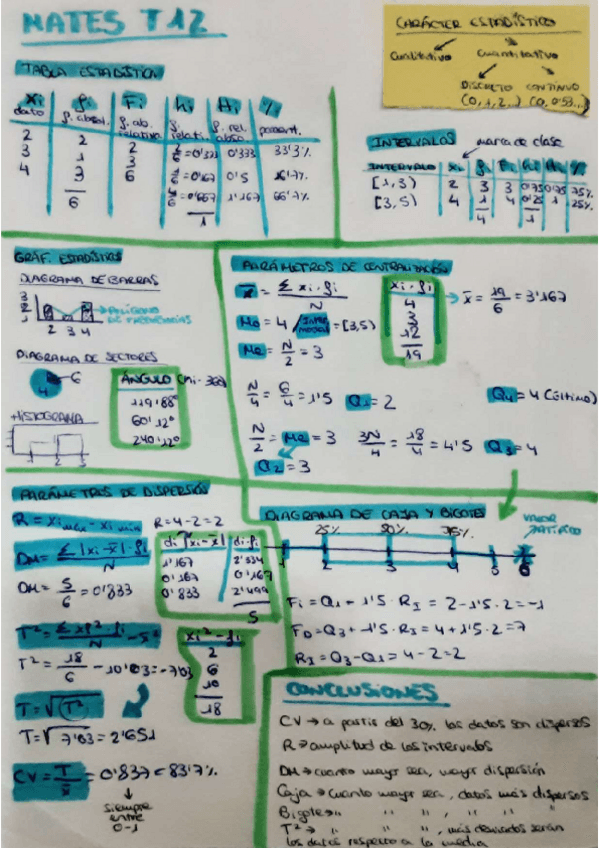 MATES T12
CARÁCTER ESTADÍSTICO
Cualitativo Cuantitativo
DISCRETO CONTINUO
(0,1,2...) (0, 0'53...)
TABLA ESTADÍSTICA
xi fi Fi hi Hi %
dato f. absol. f. ab. relativa f. relati. f. rel. abso. porcent.
2 2 2 =0'333 0'333 33'3%
3 1 3 =0'167 0'5 16'7%
4 3 6 =0'667 1'167 66'7%
6 1
INTERVALOS marca de clase
INTERVALO xi fi Fi hi Hi %
[1,3) 2 3 3 0'75 0'75 75%
[3,5) 4 1 4 0'25 1 25%
4 1
GRÁF. ESTADÍSTICOS
DIAGRAMA DE BARRAS
3
2
1
2 3 4
POLÍGONO
DE FRECUENCIAS
DIAGRAMA DE SECTORES
6
ÁNGULO (hi·360)
119'88°
60'12°
240'12°
HISTOGRAMA
PARÁMETROS DE CENTRALIZACIÓN
x̄ = Σ xi·fi / N
Mo = 4 / = [3,5)
Me = N/2 = 3
xi·fi
4
3
12
19
x̄ = 19/6 = 3'167
N/4 = 6/4 = 1'5 Q1 = 2 Q4 = 4 (último)
N/2 = Me = 3 3N/4 = 18/4 = 4'5 Q3 = 4
Q2 = 3
PARÁMETROS DE DISPERSIÓN
R = xi max - xi min R = 4-2 = 2
DM = Σ |xi - x̄|·fi / N
DM = 5/6 = 0'833
di |xi-x̄| di·fi
1'167 2'334
0'167 0'167
0'833 2'499
5
T² = Σ xi²·fi / N
T² = 18/6 - 10'03 = -7'03
xi²·fi
2
6
10
18
T = √T²
T = √7'03 = 2'651
CV = T/x̄ = 0'837 = 83'7%
siempre
entre
0-1
DIAGRAMA DE CAJA Y BIGOTES
25% 50% 75%
VALOR
ATÍPICO
1 2 3 4 5 6
Fi = Q1 + 1'5 · RI = 2 - 1'5 · 2 = -1
FD = Q3 + 1'5 · RI = 4 + 1'5 · 2 = 7
RI = Q3 - Q1 = 4 - 2 = 2
CONCLUSIONES
CV → a partir del 30% los datos son dispersos
R → amplitud de los intervalos
DM → cuanto mayor sea, mayor dispersión
Caja → cuanto mayor sea, datos más dispersos
Bigote → " " " , " " "
T² → " " ", más desviados serán
los datos respecto a la media